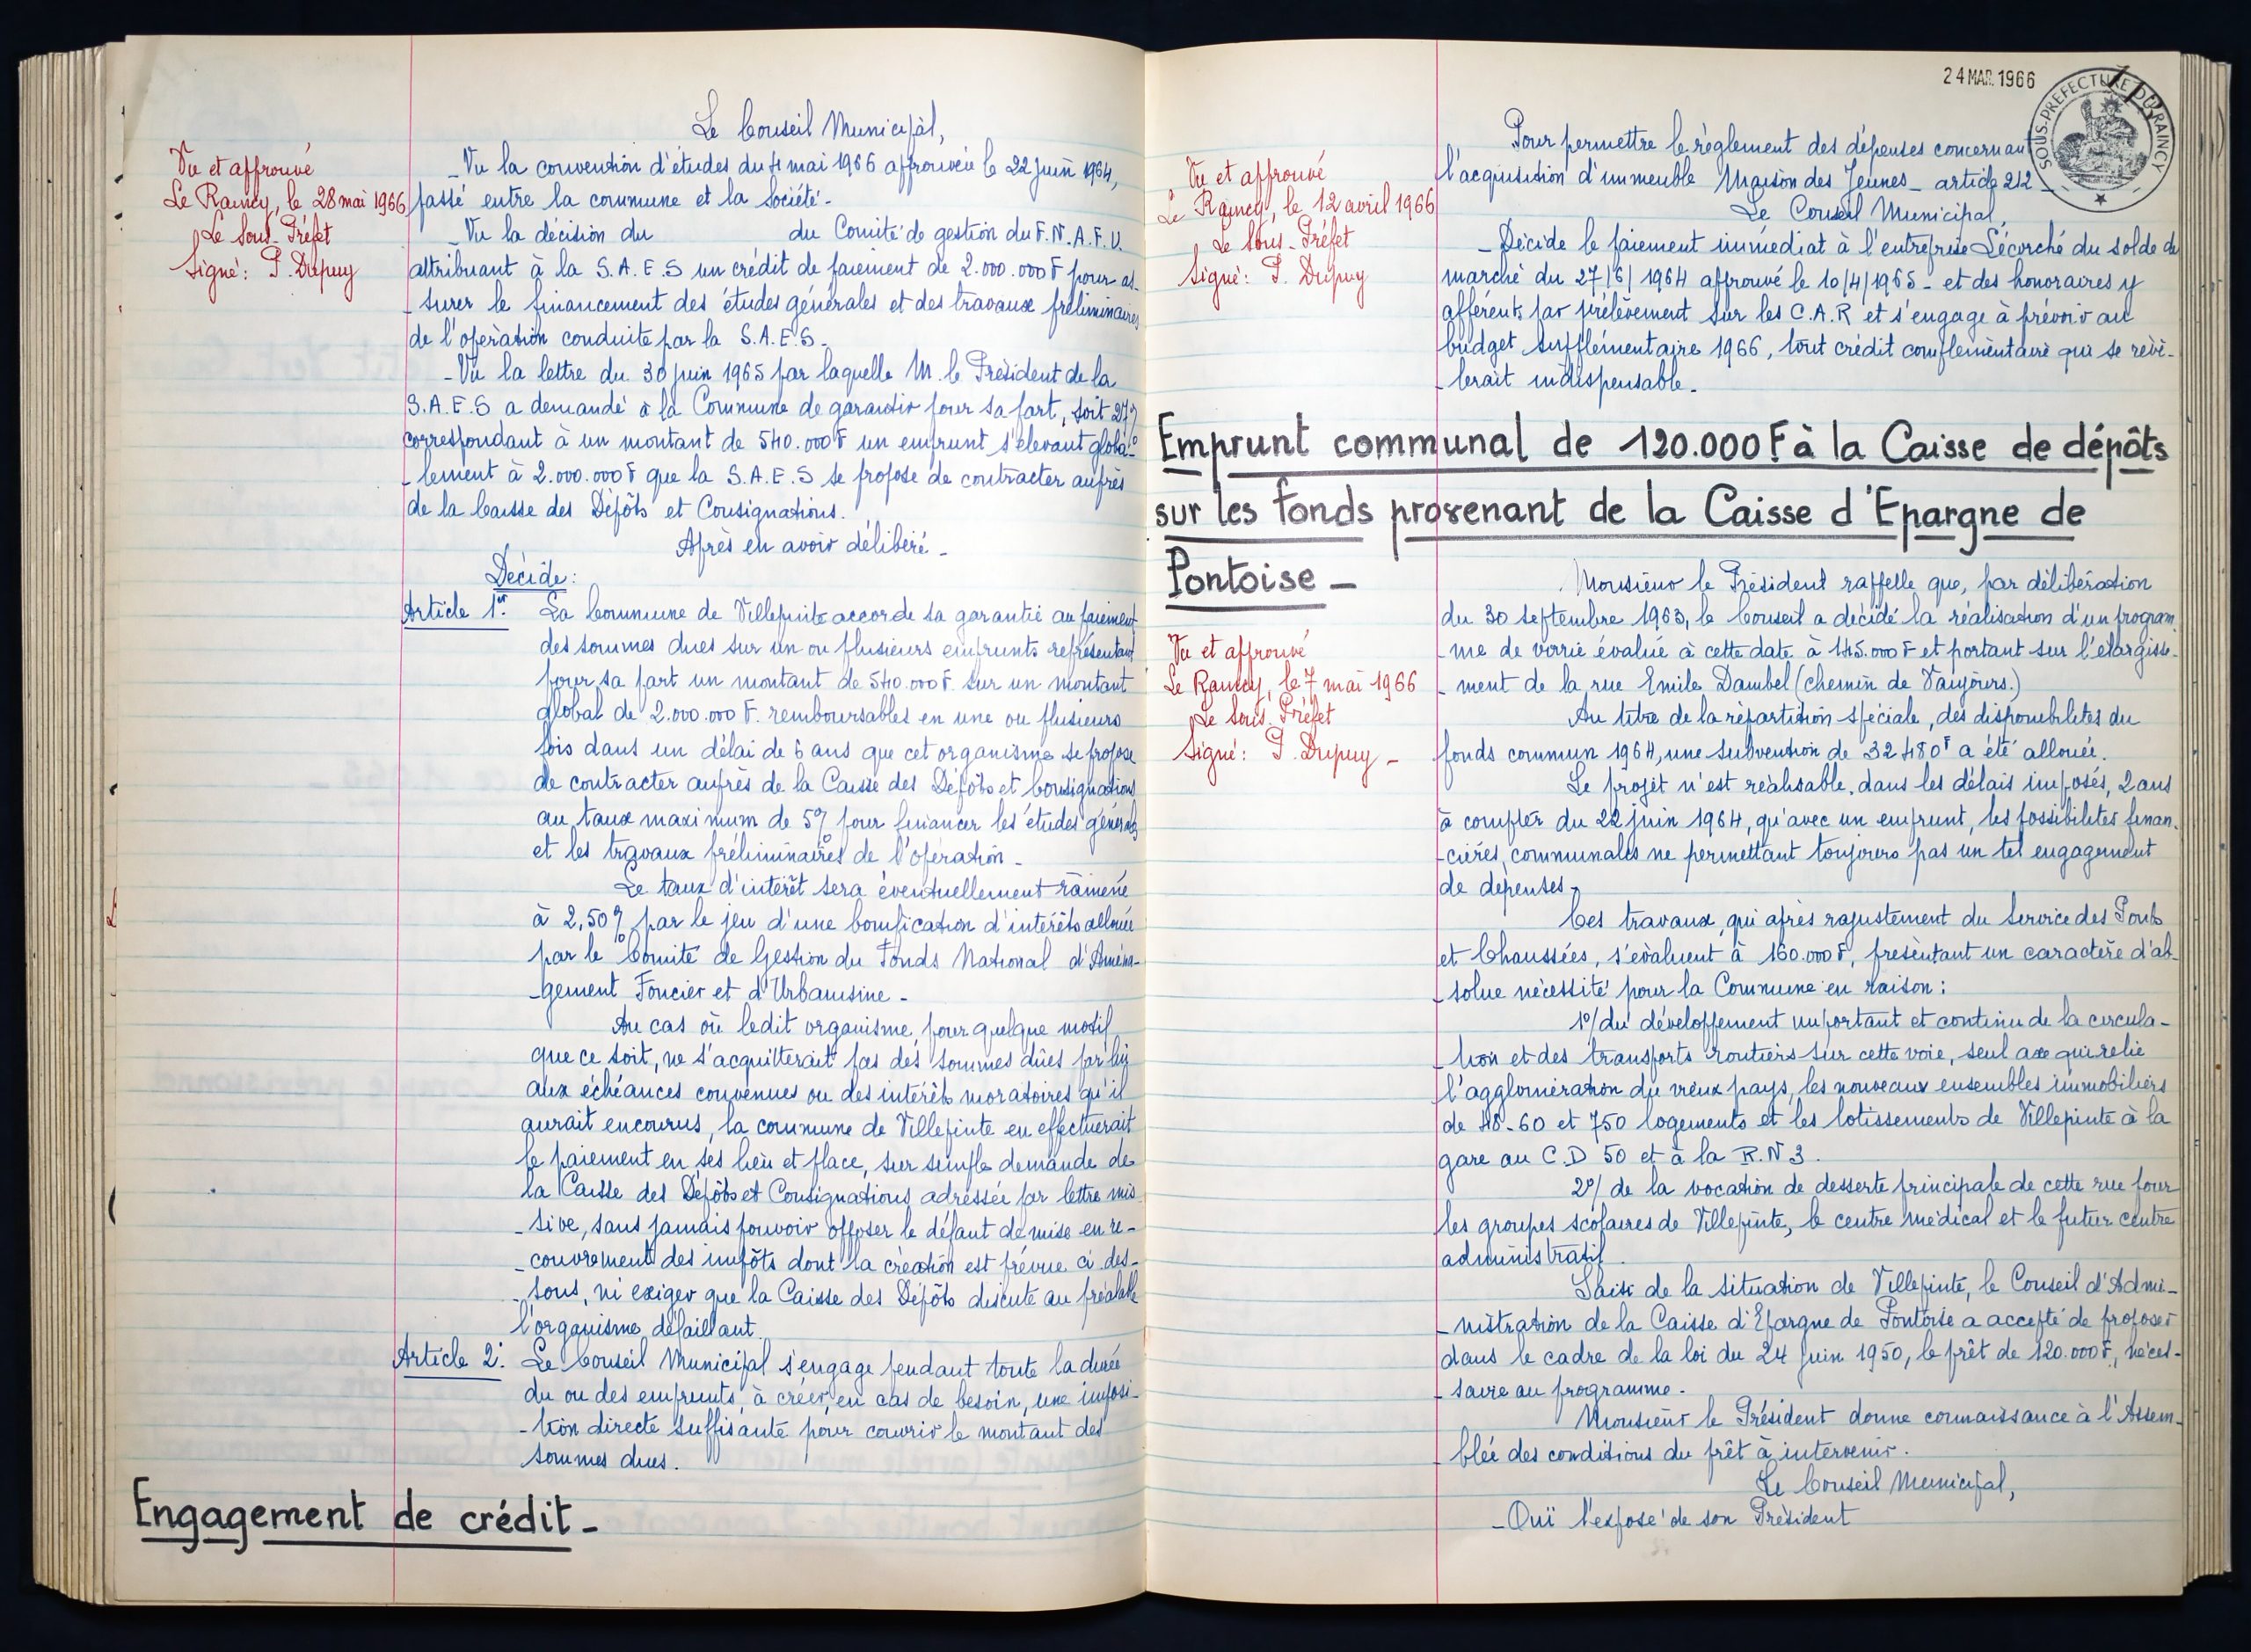 Le Conseil Municipal,
Vu et approuvé
Le Raincy, le 28 mai 1966
Le Sous-Préfet
Signé: P. Dupuy
- Vu la convention d'études du 4 mai 1966 approuvée le 22 juin 1964,
passé entre la commune et la Société -
- Vu la décision du du Comité de gestion du F.N.A.F.U.
attribuant à la S.A.E.S un crédit de paiement de 2.000.000 F pour as-
- surer le financement des études générales et des travaux préliminaires
de l'opération conduite par la S.A.E.S -
- Vu la lettre du 30 juin 1965 par laquelle M. le Président de la
S.A.E.S a demandé à la Commune de garantir pour sa part, soit 27%
correspondant à un montant de 540.000 F un emprunt s'élevant globa-
- lement à 2.000.000 F que la S.A.E.S se propose de contracter auprès
de la Caisse des Dépôts et Consignations.
Après en avoir délibéré -
Décide:
Article 1er. La Commune de Villepinte accorde sa garantie au paiement
des sommes dues sur un ou plusieurs emprunts représentant
pour sa part un montant de 540.000 F. sur un montant
global de 2.000.000 F. remboursables en une ou plusieurs
fois dans un délai de 6 ans que cet organisme se propose
de contracter auprès de la Caisse des Dépôts et Consignations
au taux maximum de 5% pour financer les études générales
et les travaux préliminaires de l'opération -
Le taux d'intérêt sera éventuellement ramené
à 2,50% par le jeu d'une bonification d'intérêts allouée
par le Comité de Gestion du Fonds National d'Aména-
- gement Foncier et d'Urbanisme -
Au cas où ledit organisme, pour quelque motif
que ce soit, ne s'acquitterait pas des sommes dûes par lui
aux échéances convenues ou des intérêts moratoires qu'il
aurait encourus, la commune de Villepinte en effectuerait
le paiement en ses lieu et place, sur simple demande de
la Caisse des Dépôts et Consignations adressée par lettre mis-
- sive, sans jamais pouvoir opposer le défaut de mise en re-
- couvrement des impôts dont la création est prévue ci-des-
- sous, ni exiger que la Caisse des Dépôts discute au préalable
l'organisme défaillant
Article 2. Le Conseil Municipal s'engage pendant toute la durée
du ou des emprunts, à créer, en cas de besoin, une imposi-
- tion directe suffisante pour couvrir le montant des
sommes dues.
Engagement de crédit -
24 MAR. 1966
SOUS-PREFECTURE DU RAINCY
Pour permettre le règlement des dépenses concernant
l'acquisition d'immeuble Maison des Jeunes - article 212 -
Vu et approuvé
Le Raincy, le 12 avril 1966
Le Sous-Préfet
Signé: P. Dupuy
Le Conseil Municipal,
- Décide le paiement immédiat à l'entreprise Lécorché du solde du
marché du 27/6/1964 approuvé le 10/4/1965 - et des honoraires y
afférents par prélèvement sur les C.A.R et s'engage à prévoir au
budget supplémentaire 1966, tout crédit complémentaire qui se révè-
- lerait indispensable -
Emprunt communal de 120.000 F à la Caisse de dépôts
sur les fonds provenant de la Caisse d'Epargne de
Pontoise -
Vu et approuvé
Le Raincy, le 7 mai 1966
Le Sous-Préfet
Signé: P. Dupuy -
Monsieur le Président rappelle que, par délibération
du 30 septembre 1963, le Conseil a décidé la réalisation d'un program-
- me de voirie évalué à cette date à 145.000 F et portant sur l'élargisse-
- ment de la rue Emile Dambel (chemin de Vaujours.)
Au titre de la répartition spéciale, des disponibilités du
fonds commun 1964, une subvention de 32 480 F a été allouée.
Le projet n'est réalisable, dans les délais imposés, 2 ans
à compter du 22 juin 1964, qu'avec un emprunt, les possibilités finan-
- cières communales ne permettant toujours pas un tel engagement
de dépenses -
Ces travaux, qui après rajustement du Service des Ponts
et Chaussées, s'évaluent à 160.000 F, présentant un caractère d'ab-
- solue nécessité pour la Commune en raison:
1°/ du développement important et continu de la circula-
- tion et des transports routiers sur cette voie, seul axe qui relie
l'agglomération du vieux pays, les nouveaux ensembles immobiliers
de 48-60 et 750 logements et les lotissements de Villepinte à la
gare au C.D 50 et à la R.N 3.
2°/ de la vocation de desserte principale de cette rue pour
les groupes scolaires de Villepinte, le centre médical et le futur centre
administratif.
Saisi de la situation de Villepinte, le Conseil d'Admi-
- nistration de la Caisse d'Epargne de Pontoise a accepté de proposer
dans le cadre de la loi du 24 juin 1950, le prêt de 120.000 F, néces-
- saire au programme.
Monsieur le Président donne connaissance à l'Assem-
- blée des conditions du prêt à intervenir.
Le Conseil Municipal,
- Ouï l'exposé de son Président